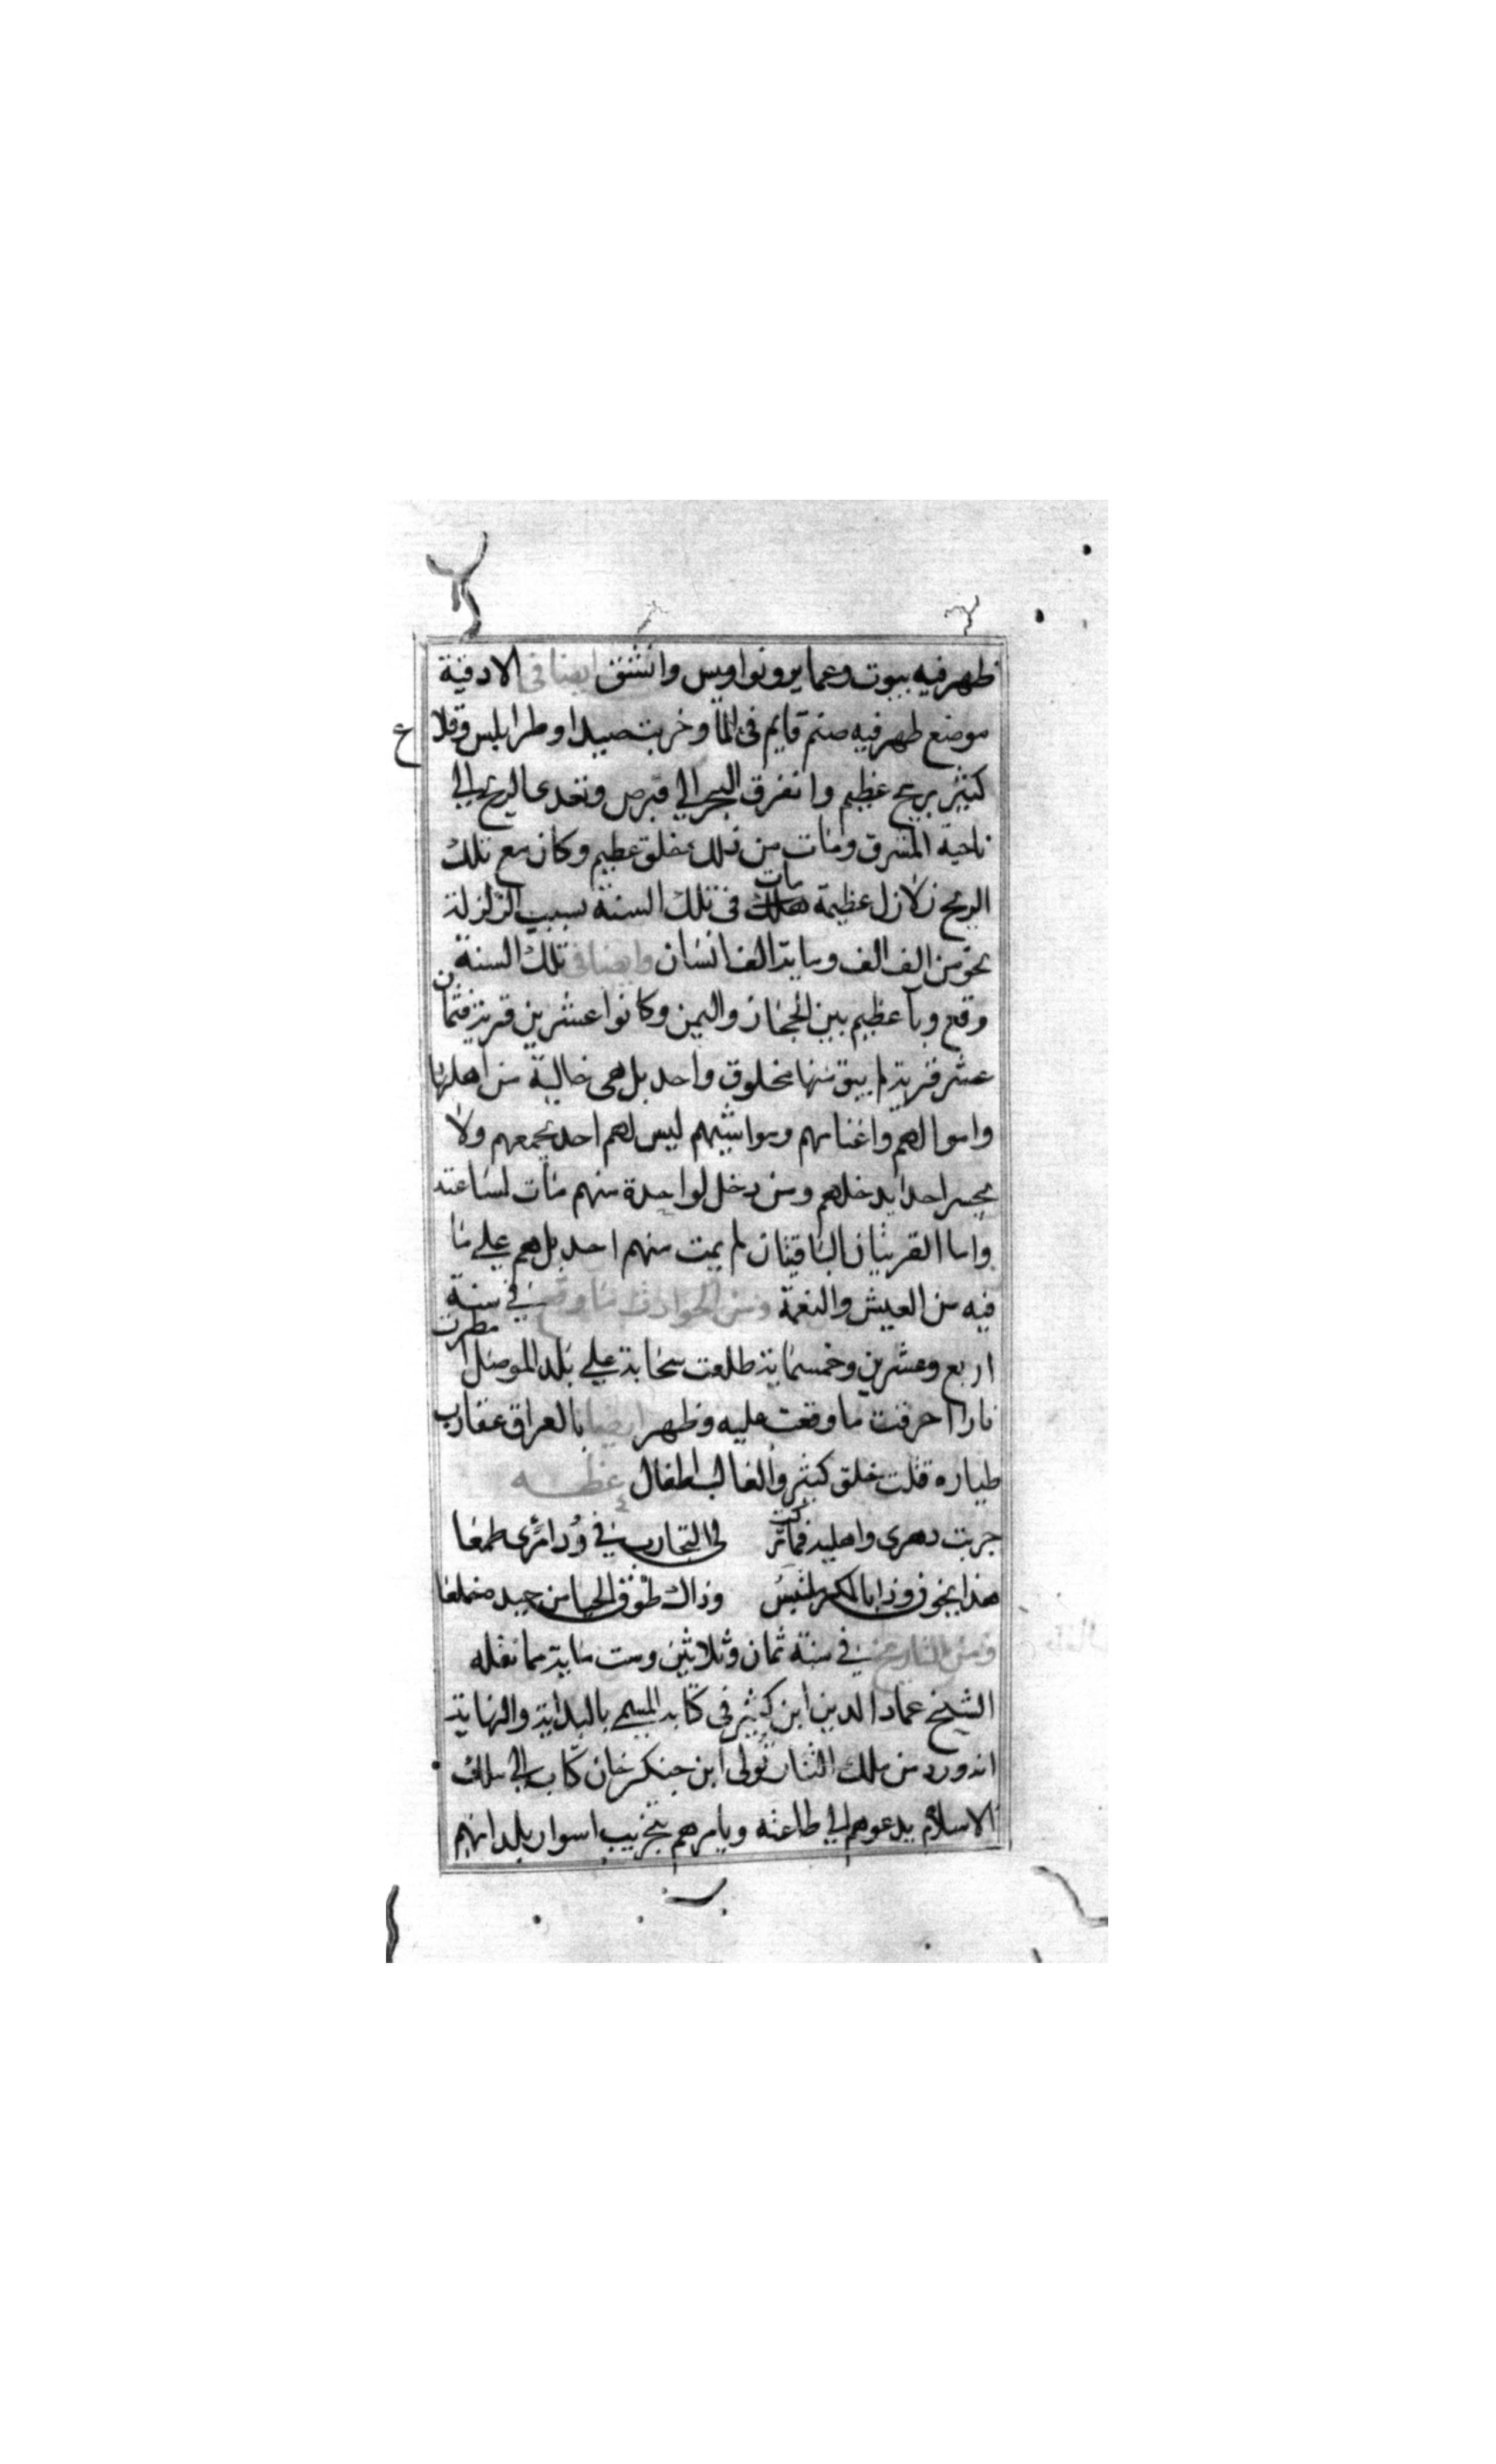 ظهر فيه بيوت وعماير ونواويس وانشق ايضا فى الادقية
موضع ظهر فيه صنم قايم فى الما وخربت صيدا وطرابلس وقلاع
كثير برج عظيم وانفرق البحر الي قبرص وتعدى الريح الي
ناحية المشرق ومات من ذلك خلق عظيم وكان مع تلك
الريح زلازل عظيمة مات فى تلك السنة بسبب الزلزلة
نحو من الف الف وماية الف انسان وايضا فى تلك السنة
وقع وبا عظيم بين الحجاز واليمن وكانوا عشرين قرية فثمان
عشر قرية لم يبق منها مخلوق واحد بل هى خالية من اهلها
واموالهم واغنامهم ومواشيهم ليس لهم احد يجمعهم ولا
يجسر احد يدخلهم ومن دخل لواحدة منهم مات لساعته
واما القريتان الباقيتان لم يمت منهم احد بل هم علي ما
فيه من العيش والنعمة ومن الحوادث ما وقع في سنة
اربع وعشرين وخمسماية طلعت سحابة علي بلد الموصل امطرت
نارا احرقت ما وقعت عليه وظهر ايضا بالعراق عقارب
طياره قتلت خلق كثير والغالب اطفال عظه
جربت دهرى واهليه فما تركت لى التجارب في ود امرى طمعا
هذا يخوف وذا بالمكر وذاك طوق الحيا من جيد
ومن التاريخ في سنة ثمان وثلاثين وست ماية مما نقله
الشيخ عماد الدين ابن كثير فى كتابه المسمي بالبداية والنهاية
انه ورد من ملك التتار تولى ابن جنكزخان كتاب الي ملك
الاسلام يدعوهم الي طاعته ويامرهم بتخريب اسوار بلدانهم